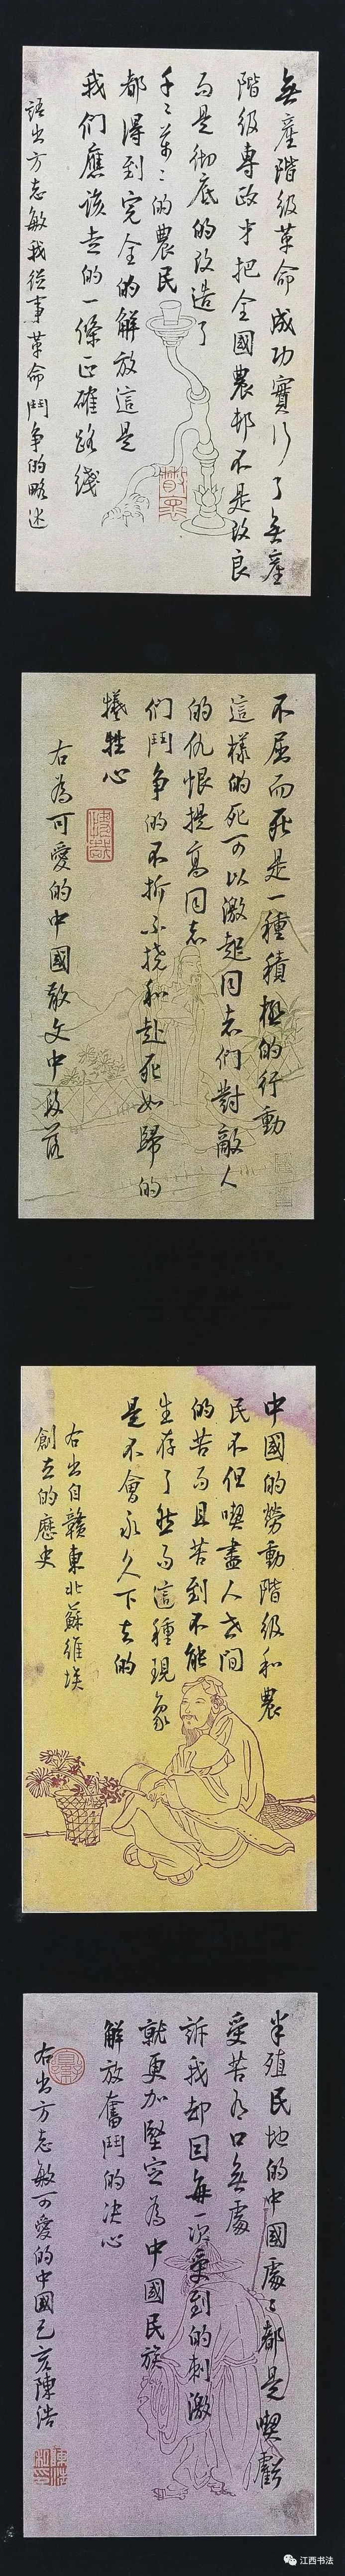 無產階級革命成功實行了無產
階級專政才把全國農邨不是改良
而是彻底的改造了
千〻萬〻的農民
都得到完全的解放這是
我们應该走的一條正確路綫
語出方志敏我從事革命鬥争的略述
不屈而死是一種積極的行動
這樣的死可以激起同志們對敵人
的仇恨提高同志
們鬥争的不折不撓和赴死如歸的
犧牲心
右為可愛的中國散文中段落
中國的勞動階級和農
民不但喫盡人世間
的苦而且苦到不能
生存了然而這種現象
是不會永久下去的
右出自贛東北蘇維埃
創立的歷史
半殖民地的中國處〻都是喫虧
受苦有口無處
訴我却因每一次受到的刺激
就更加堅定為中國民族
解放奮鬥的决心
右出方志敏可愛的中國己亥陳浩
江西书法